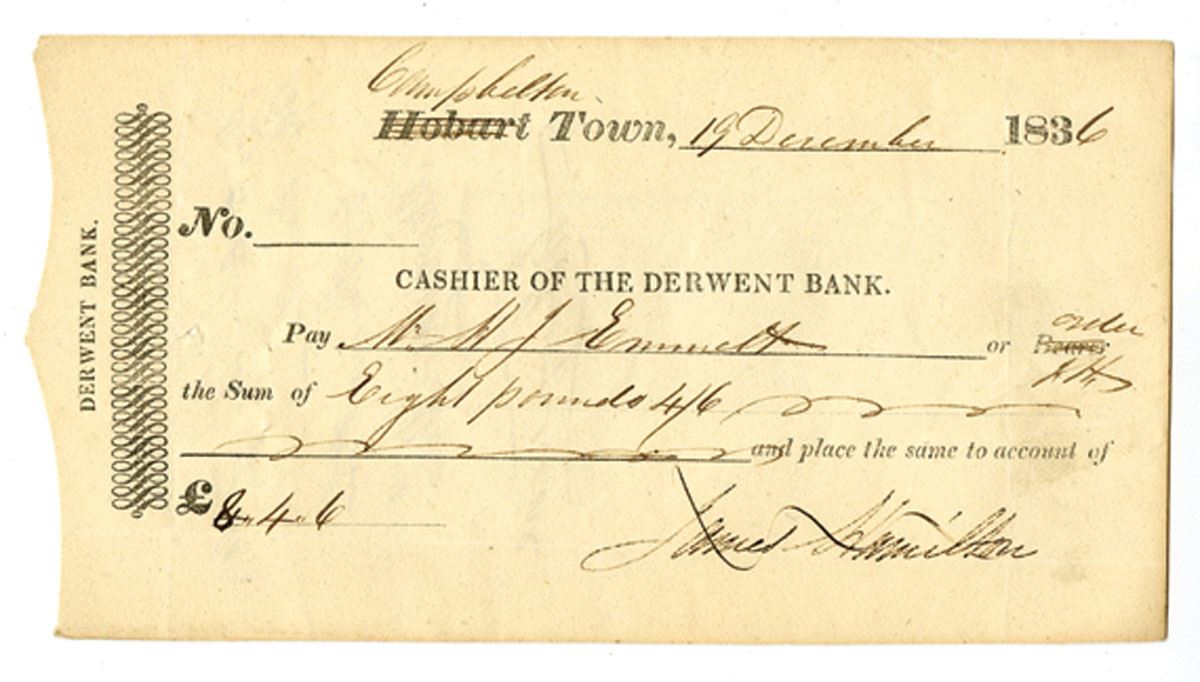 Campbelton
Hobart Town, 19 December 1836
DERWENT BANK.
No.
CASHIER OF THE DERWENT BANK.
order
Pay Mr. H J Emmett or Bearer
JH
the Sum of Eight pounds 4/6
and place the same to account of
£ 8.. 4.. 6
James Hamilton